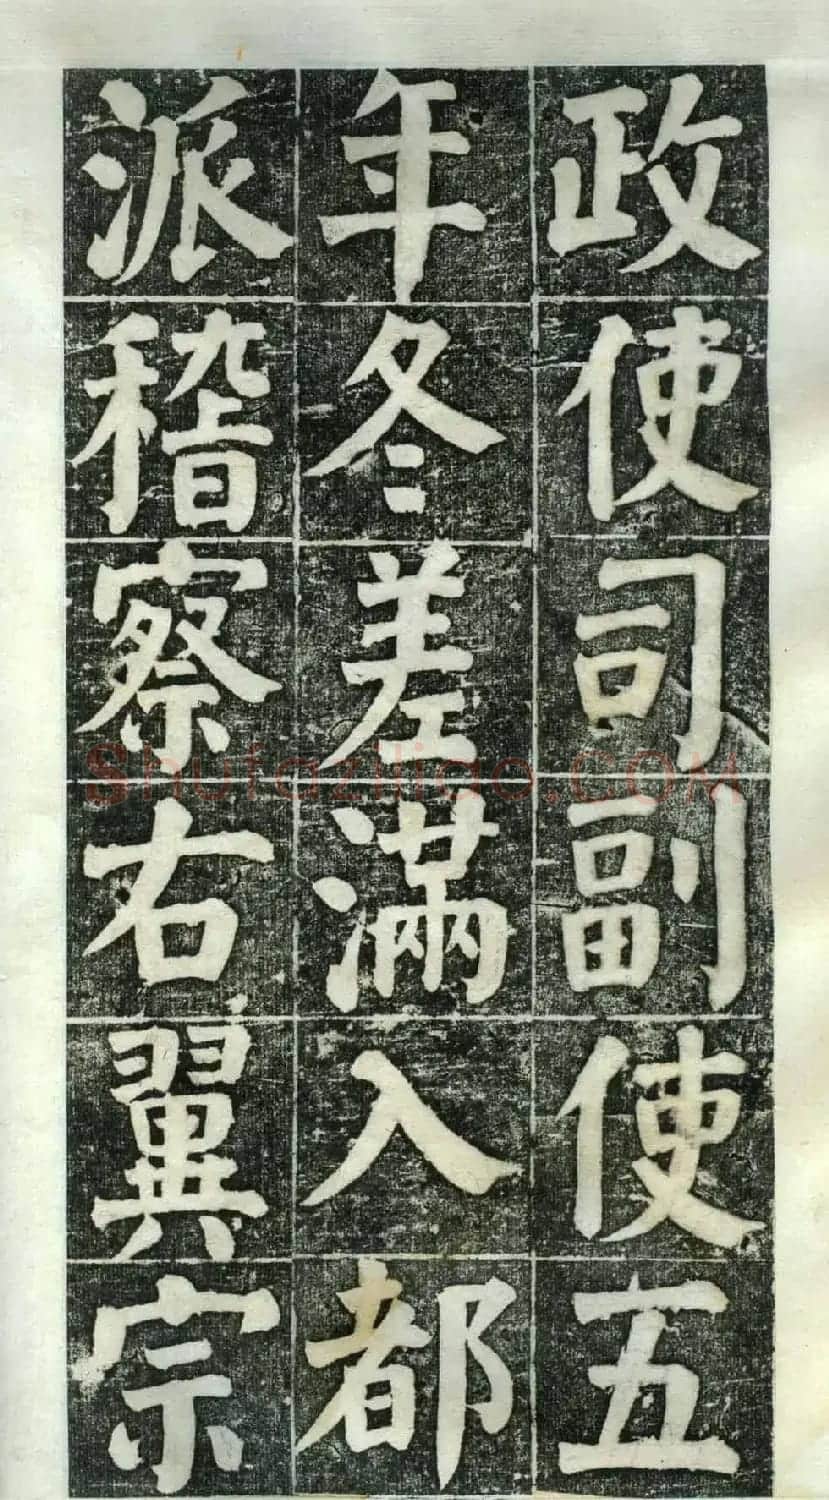 政使司副使五
年冬差滿入都
派稽察右翼宗
shufaziliao.COM